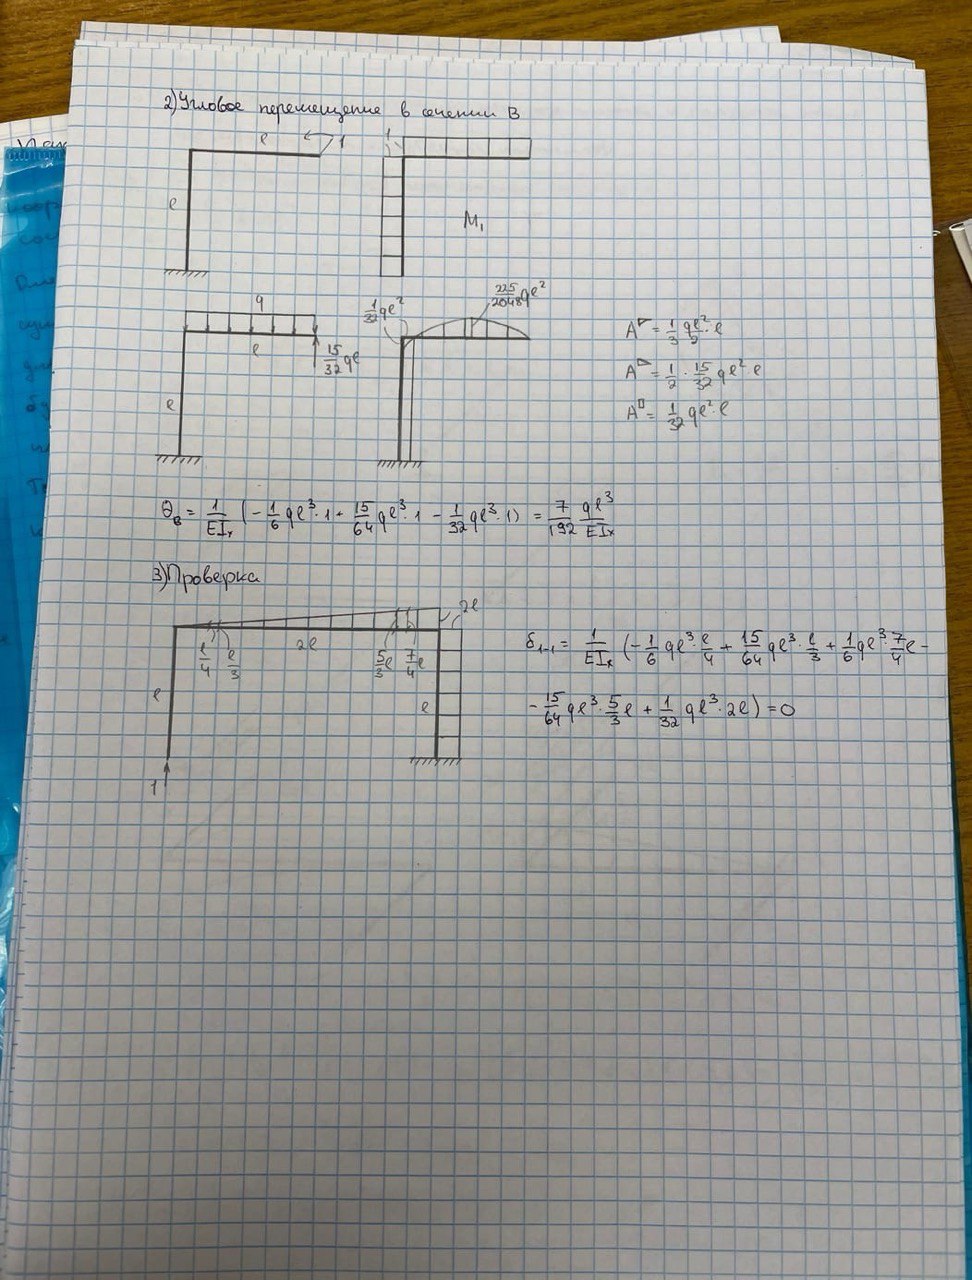 2) Угловое перемещение в сечении B
l
1
1
l
M₁
q
1/32 ql²
225/2048 ql²
l
15/32 ql
l
A = 1/3 ql²/2 · l
A = 1/2 · 15/32 ql² · l
A = 1/32 ql² · l
θ_B = 1/EIₓ (-1/6 ql³·1 + 15/64 ql³·1 - 1/32 ql³·1) = 7/192 ql³/EIₓ
3) Проверка
2l
l/4 l/3 2l 5/3 l 7/4 l
l
l
1
δ₁₋₁ = 1/EIₓ (-1/6 ql³·l/4 + 15/64 ql³·l/3 + 1/6 ql³·7/4 l -
- 15/64 ql³·5/3 l + 1/32 ql³·2l) = 0